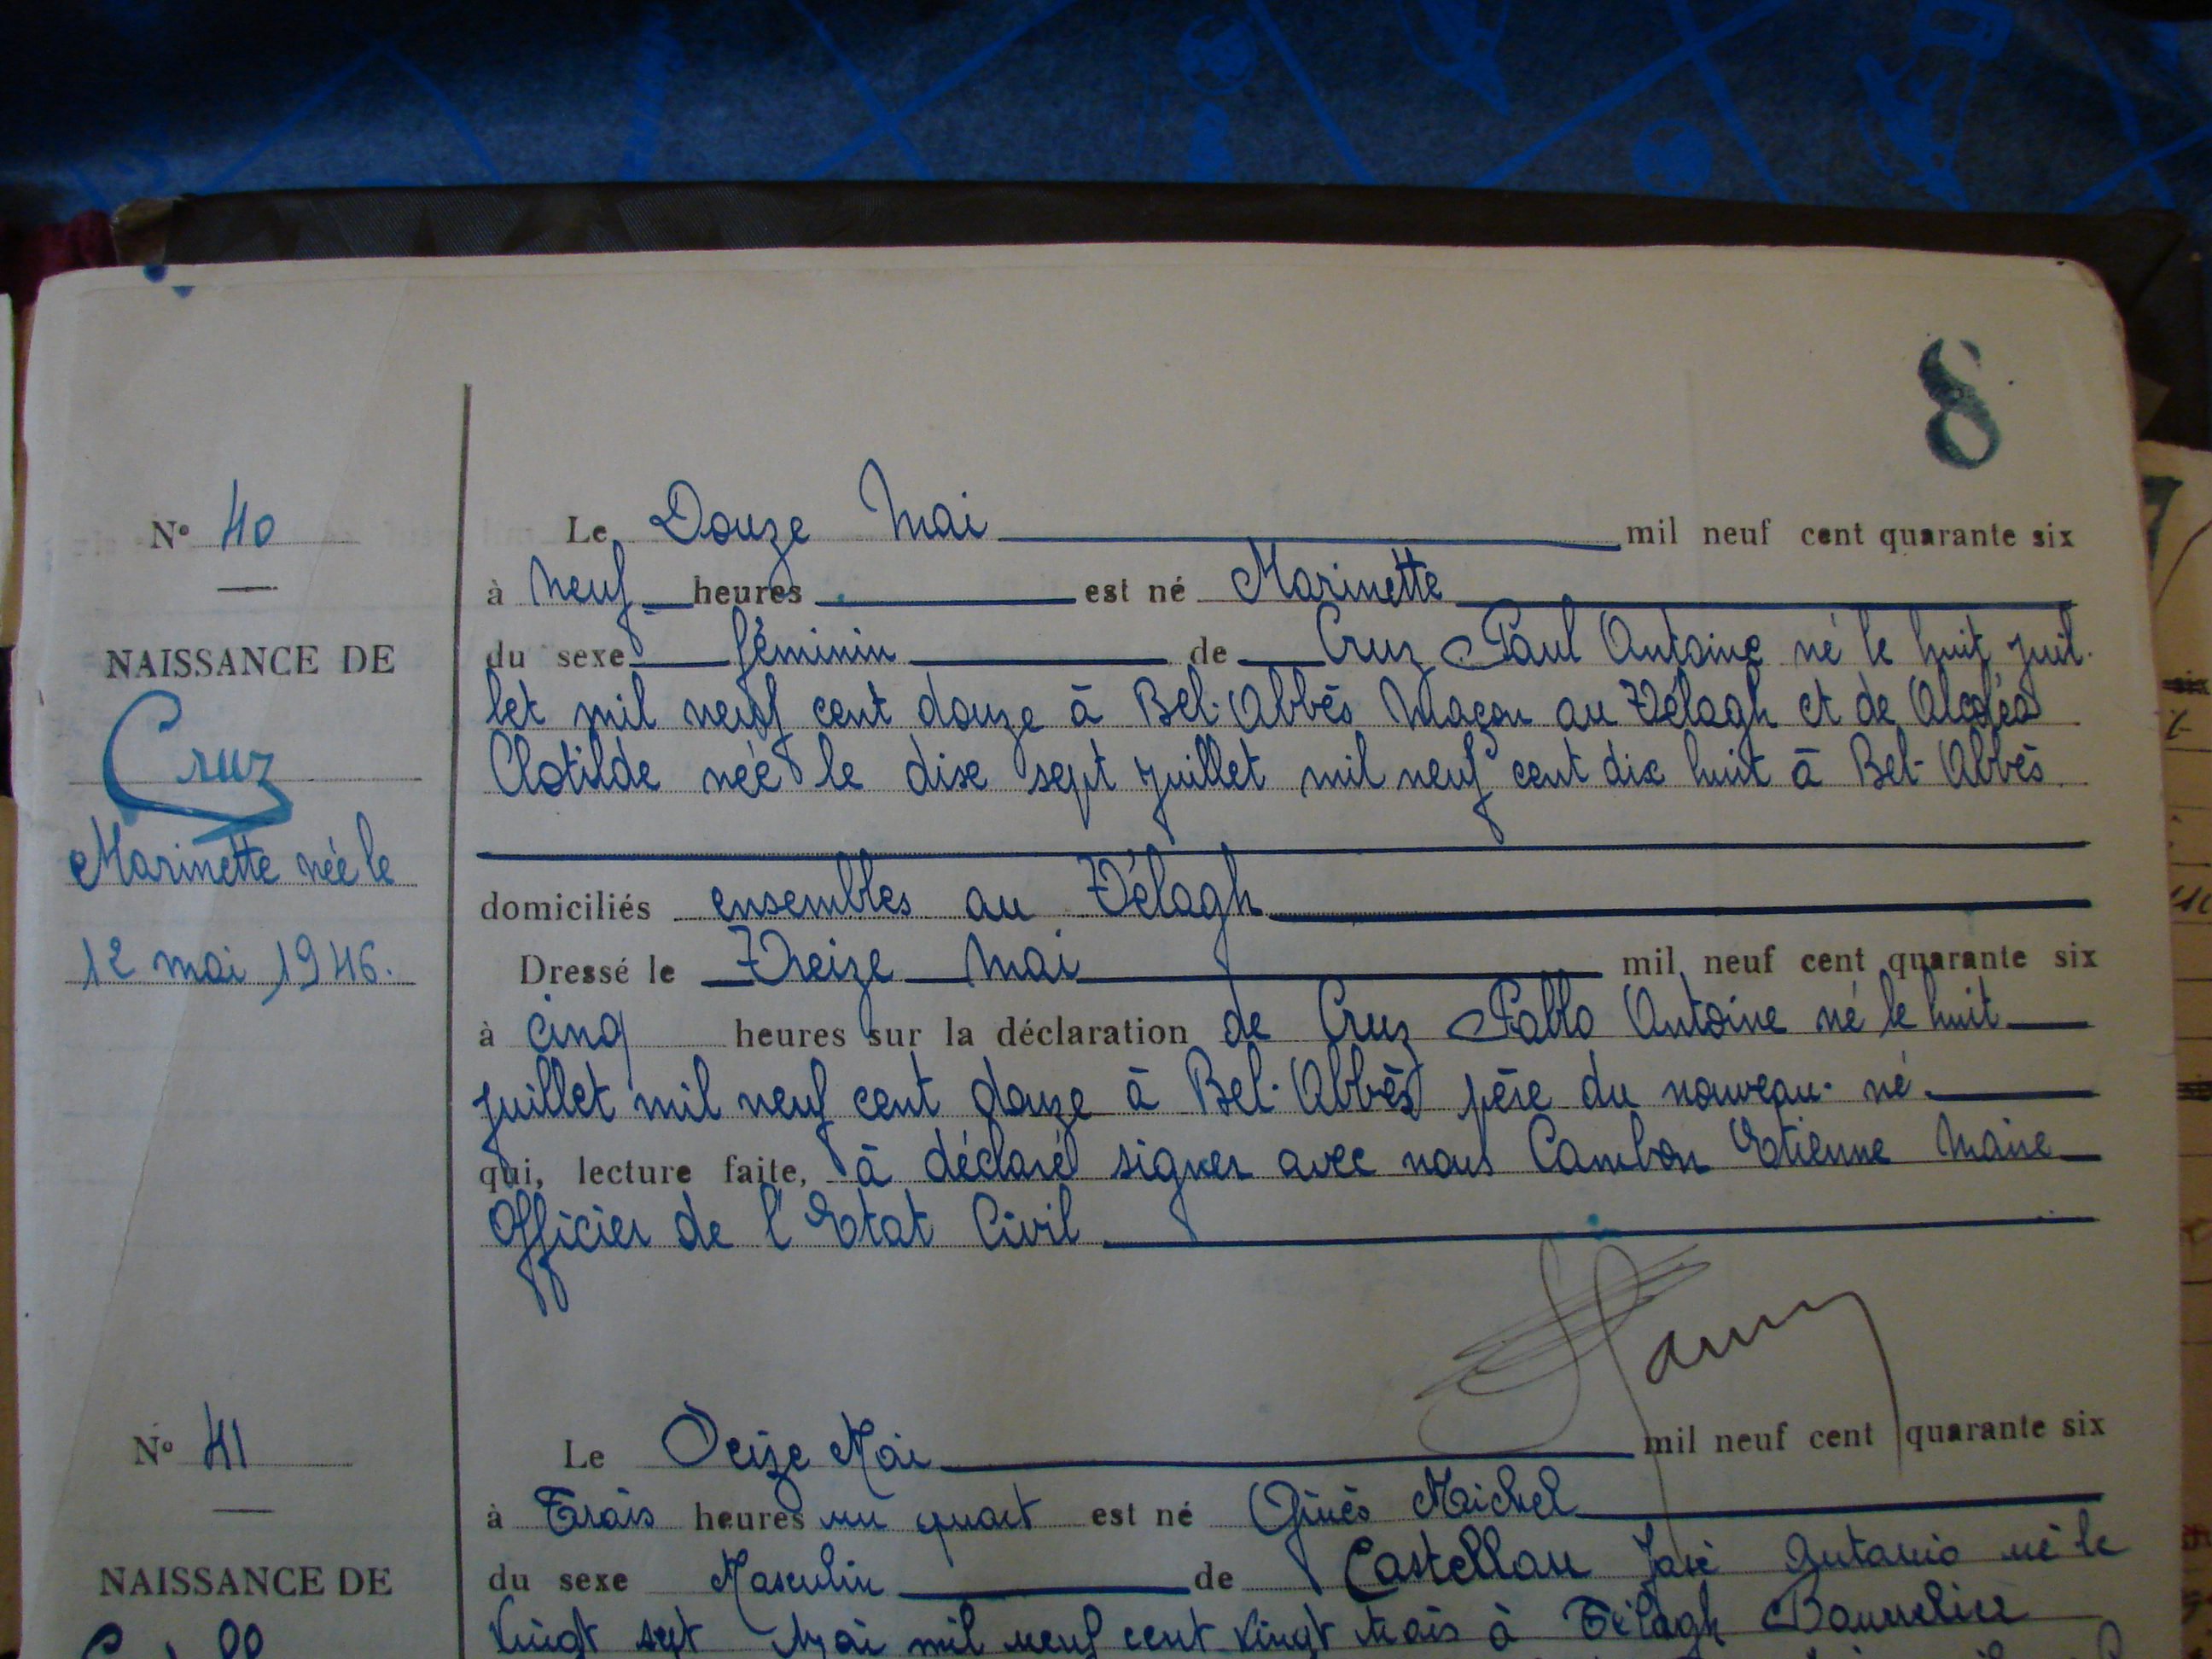 8
N° 40
NAISSANCE DE
Cruz
Marinette née le
12 mai 1946.
Le Douze Mai mil neuf cent quarante six
à neuf heures est né Marinette
du sexe féminin de Cruz Paul Antoine né le huit juil.
let mil neuf cent douze à Bel-Abbès Maçon au Télagh et de Alcoléa
Clotilde née le dix sept juillet mil neuf cent dix huit à Bel-Abbès
domiciliés ensembles au Télagh
Dressé le Treize Mai mil neuf cent quarante six
à cinq heures sur la déclaration de Cruz Pablo Antoine né le huit
juillet mil neuf cent douze à Bel-Abbès père du nouveau-né.
qui, lecture faite, à déclaré signer avec nous Cambon Etienne Maire
Officier de l'Etat Civil
N° 41
NAISSANCE DE
Le Seize Mai mil neuf cent quarante six
à Trois heures un quart est né Ginès Michel
du sexe Masculin de Castellon José Antonio né le
Vingt sept Mai mil neuf cent vingt trois à Télagh Bourrelier